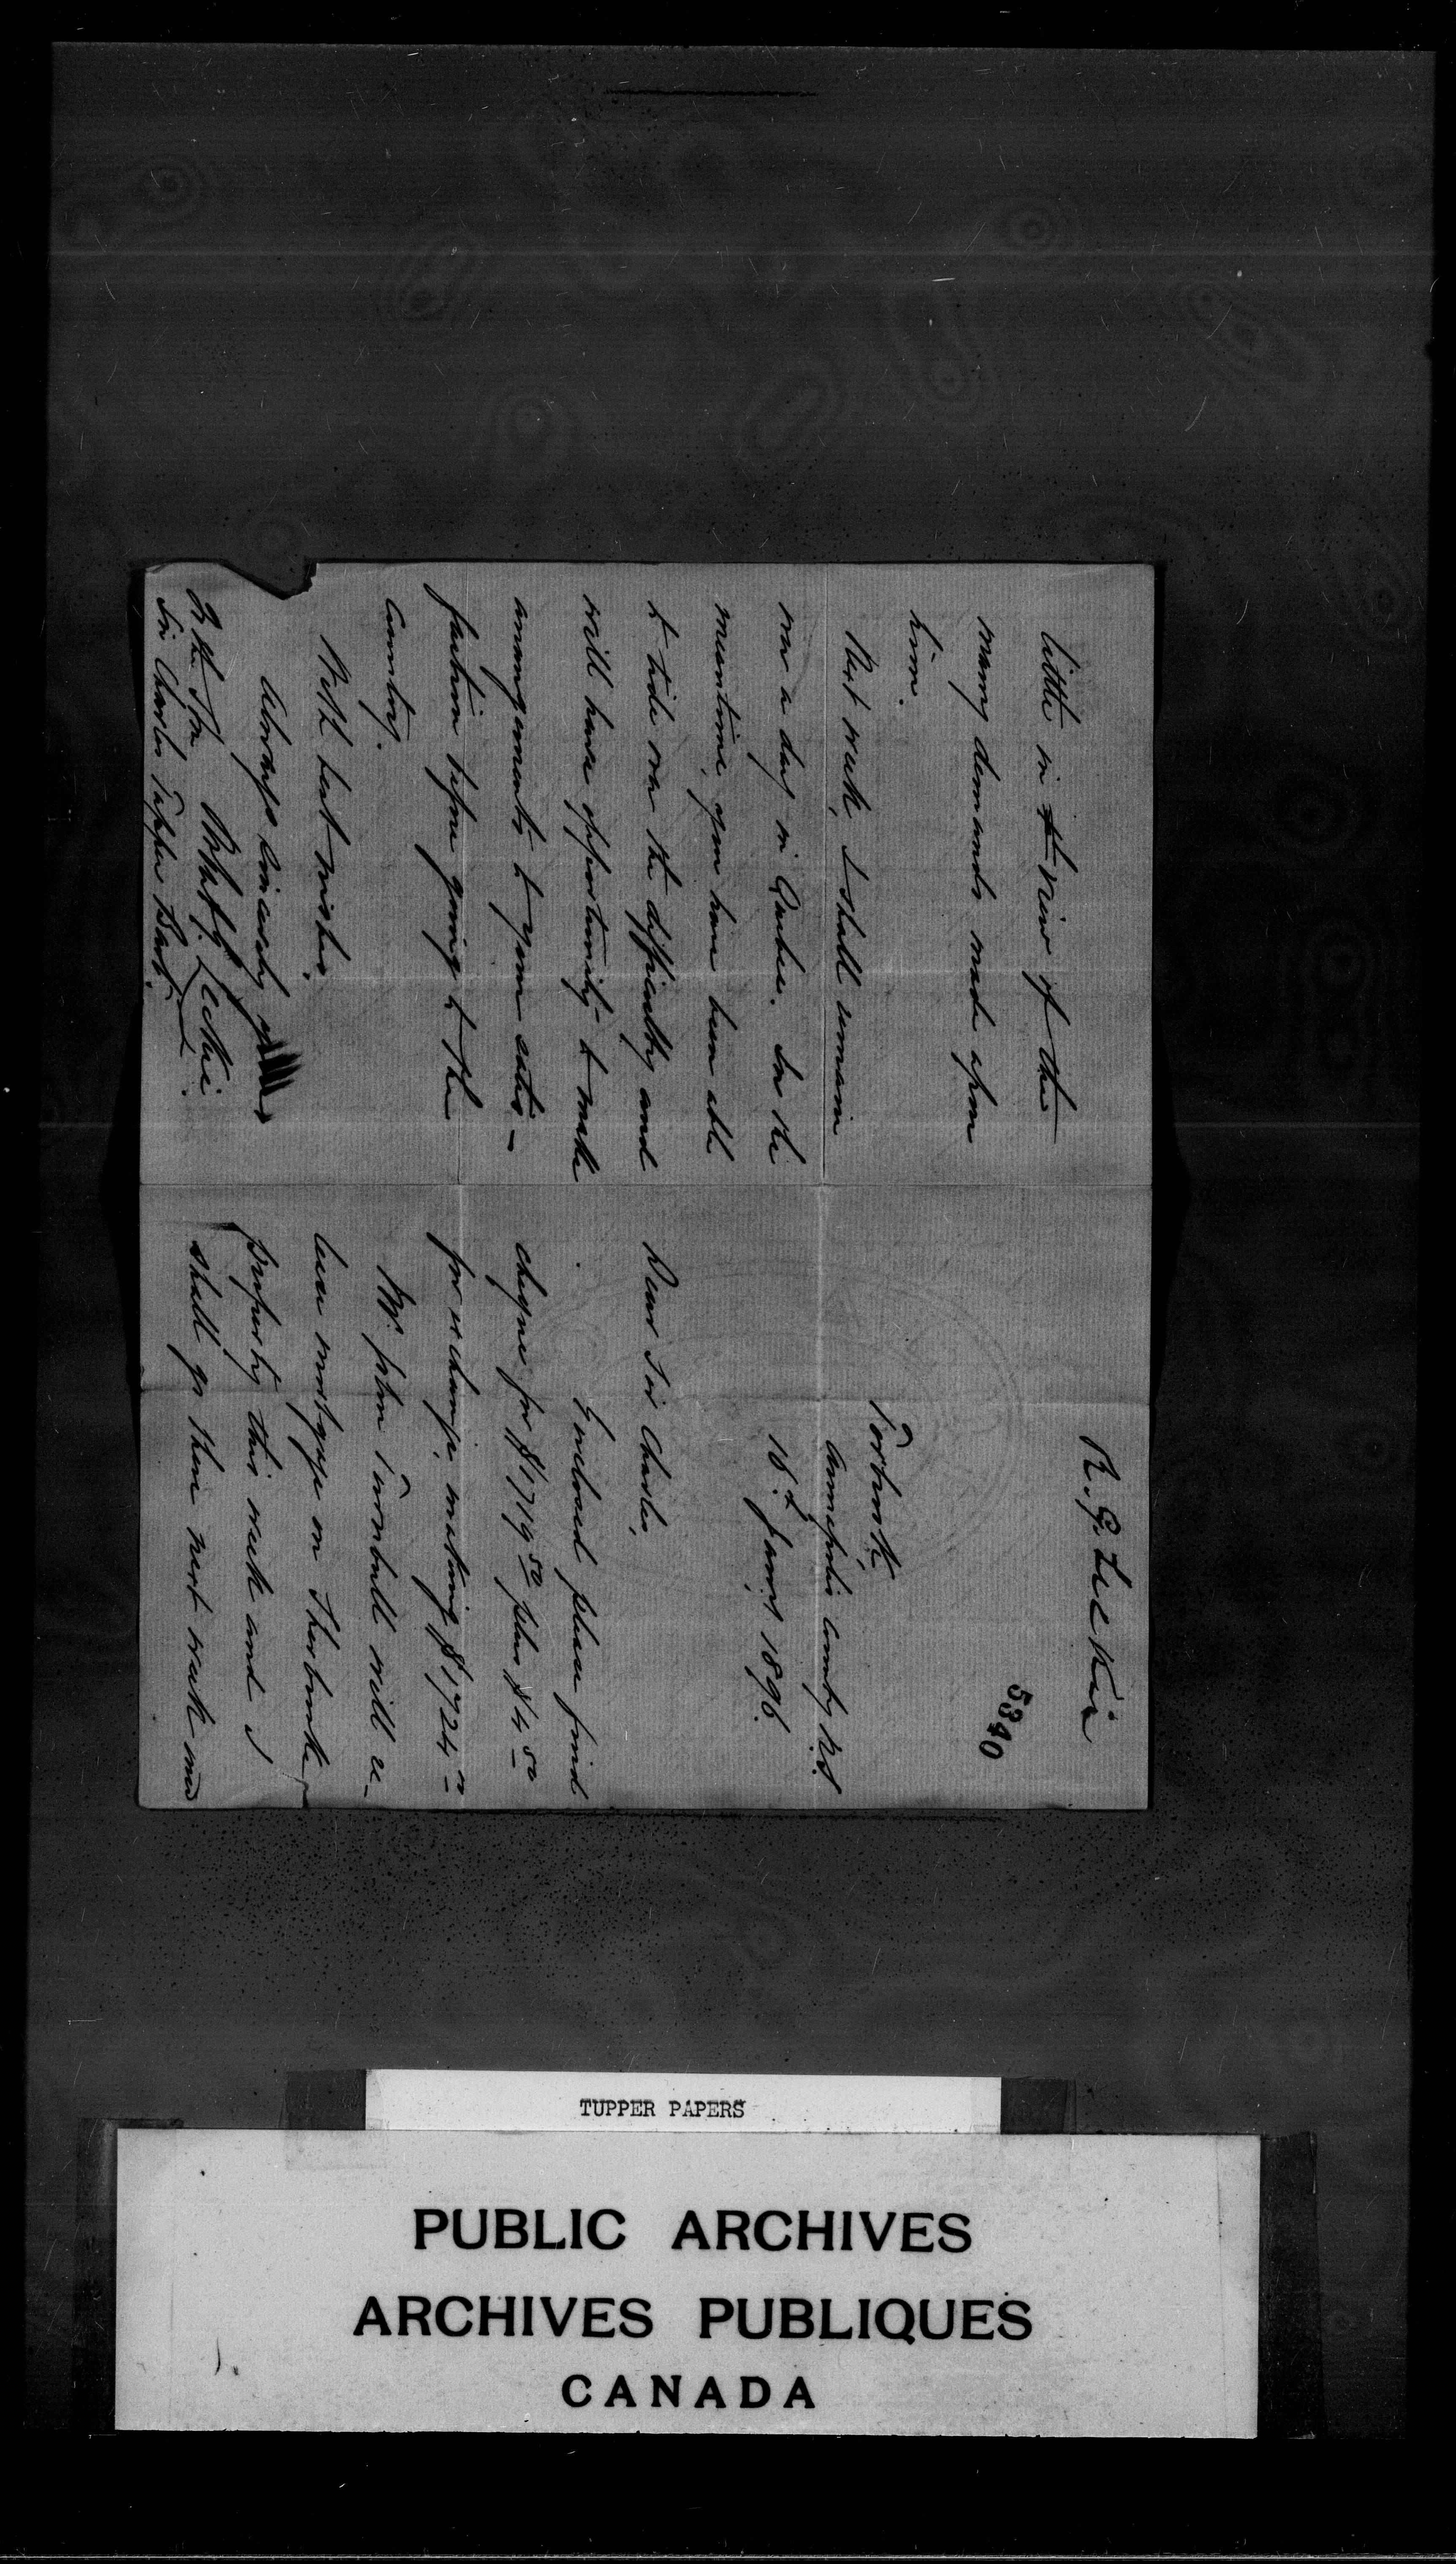 R. G. Leckie
5340
Torbrook
Annapolis County N.S.
18th Jany 1896.
Dear Sir Charles,
Enclosed please find
cheque for $1719 50 plus $4 50
for exchange, making $1724 00
Mr. John Turnbull will re-
lease mortgage on Sherbrooke
property this week and I
shall go there next week and
little in view of the
many demands made upon
him.
Next week, I shall remain
over a day in Quebec. In the
meantime, you have been able
to tide over the difficulty and
will have opportunity to make
arrangements to your satis-
faction before going to the
Country.
With best wishes,
Always sincerely yours
Leckie
R. the Hon
Sir Charles Tupper Bart.
TUPPER PAPERS
PUBLIC ARCHIVES
ARCHIVES PUBLIQUES
CANADA